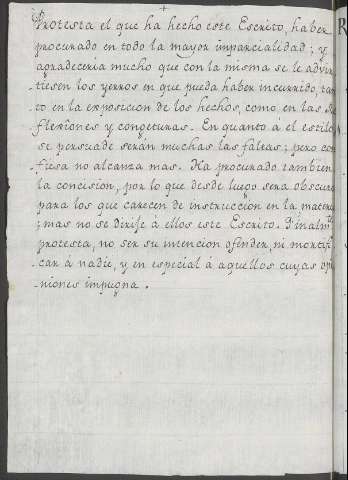 +
Protesta el que ha hecho este Escrito, haber
procurado en todo la mayor imparcialidad; y
agradeceria mucho que con la misma se le advir
tiesen los yerros en que pueda haber incurrido, tan
to en la exposicion de los hechos, como en las Re
flexîones y congeturas. En quanto á el estilo
se persuade serán muchas las faltas; pero con
fiesa no alcanza mas. Ha procurado tambien
la concision, por lo que desde luego sera obscuro
para los que carecen de instruccion en la materia
; mas no se dirije á ellos este Escrito. Finalm.te
protesta, no ser su intencion ofender, ni mortifi
car á nadie, y en especial á aquellos cuyas opi
niones impugna.